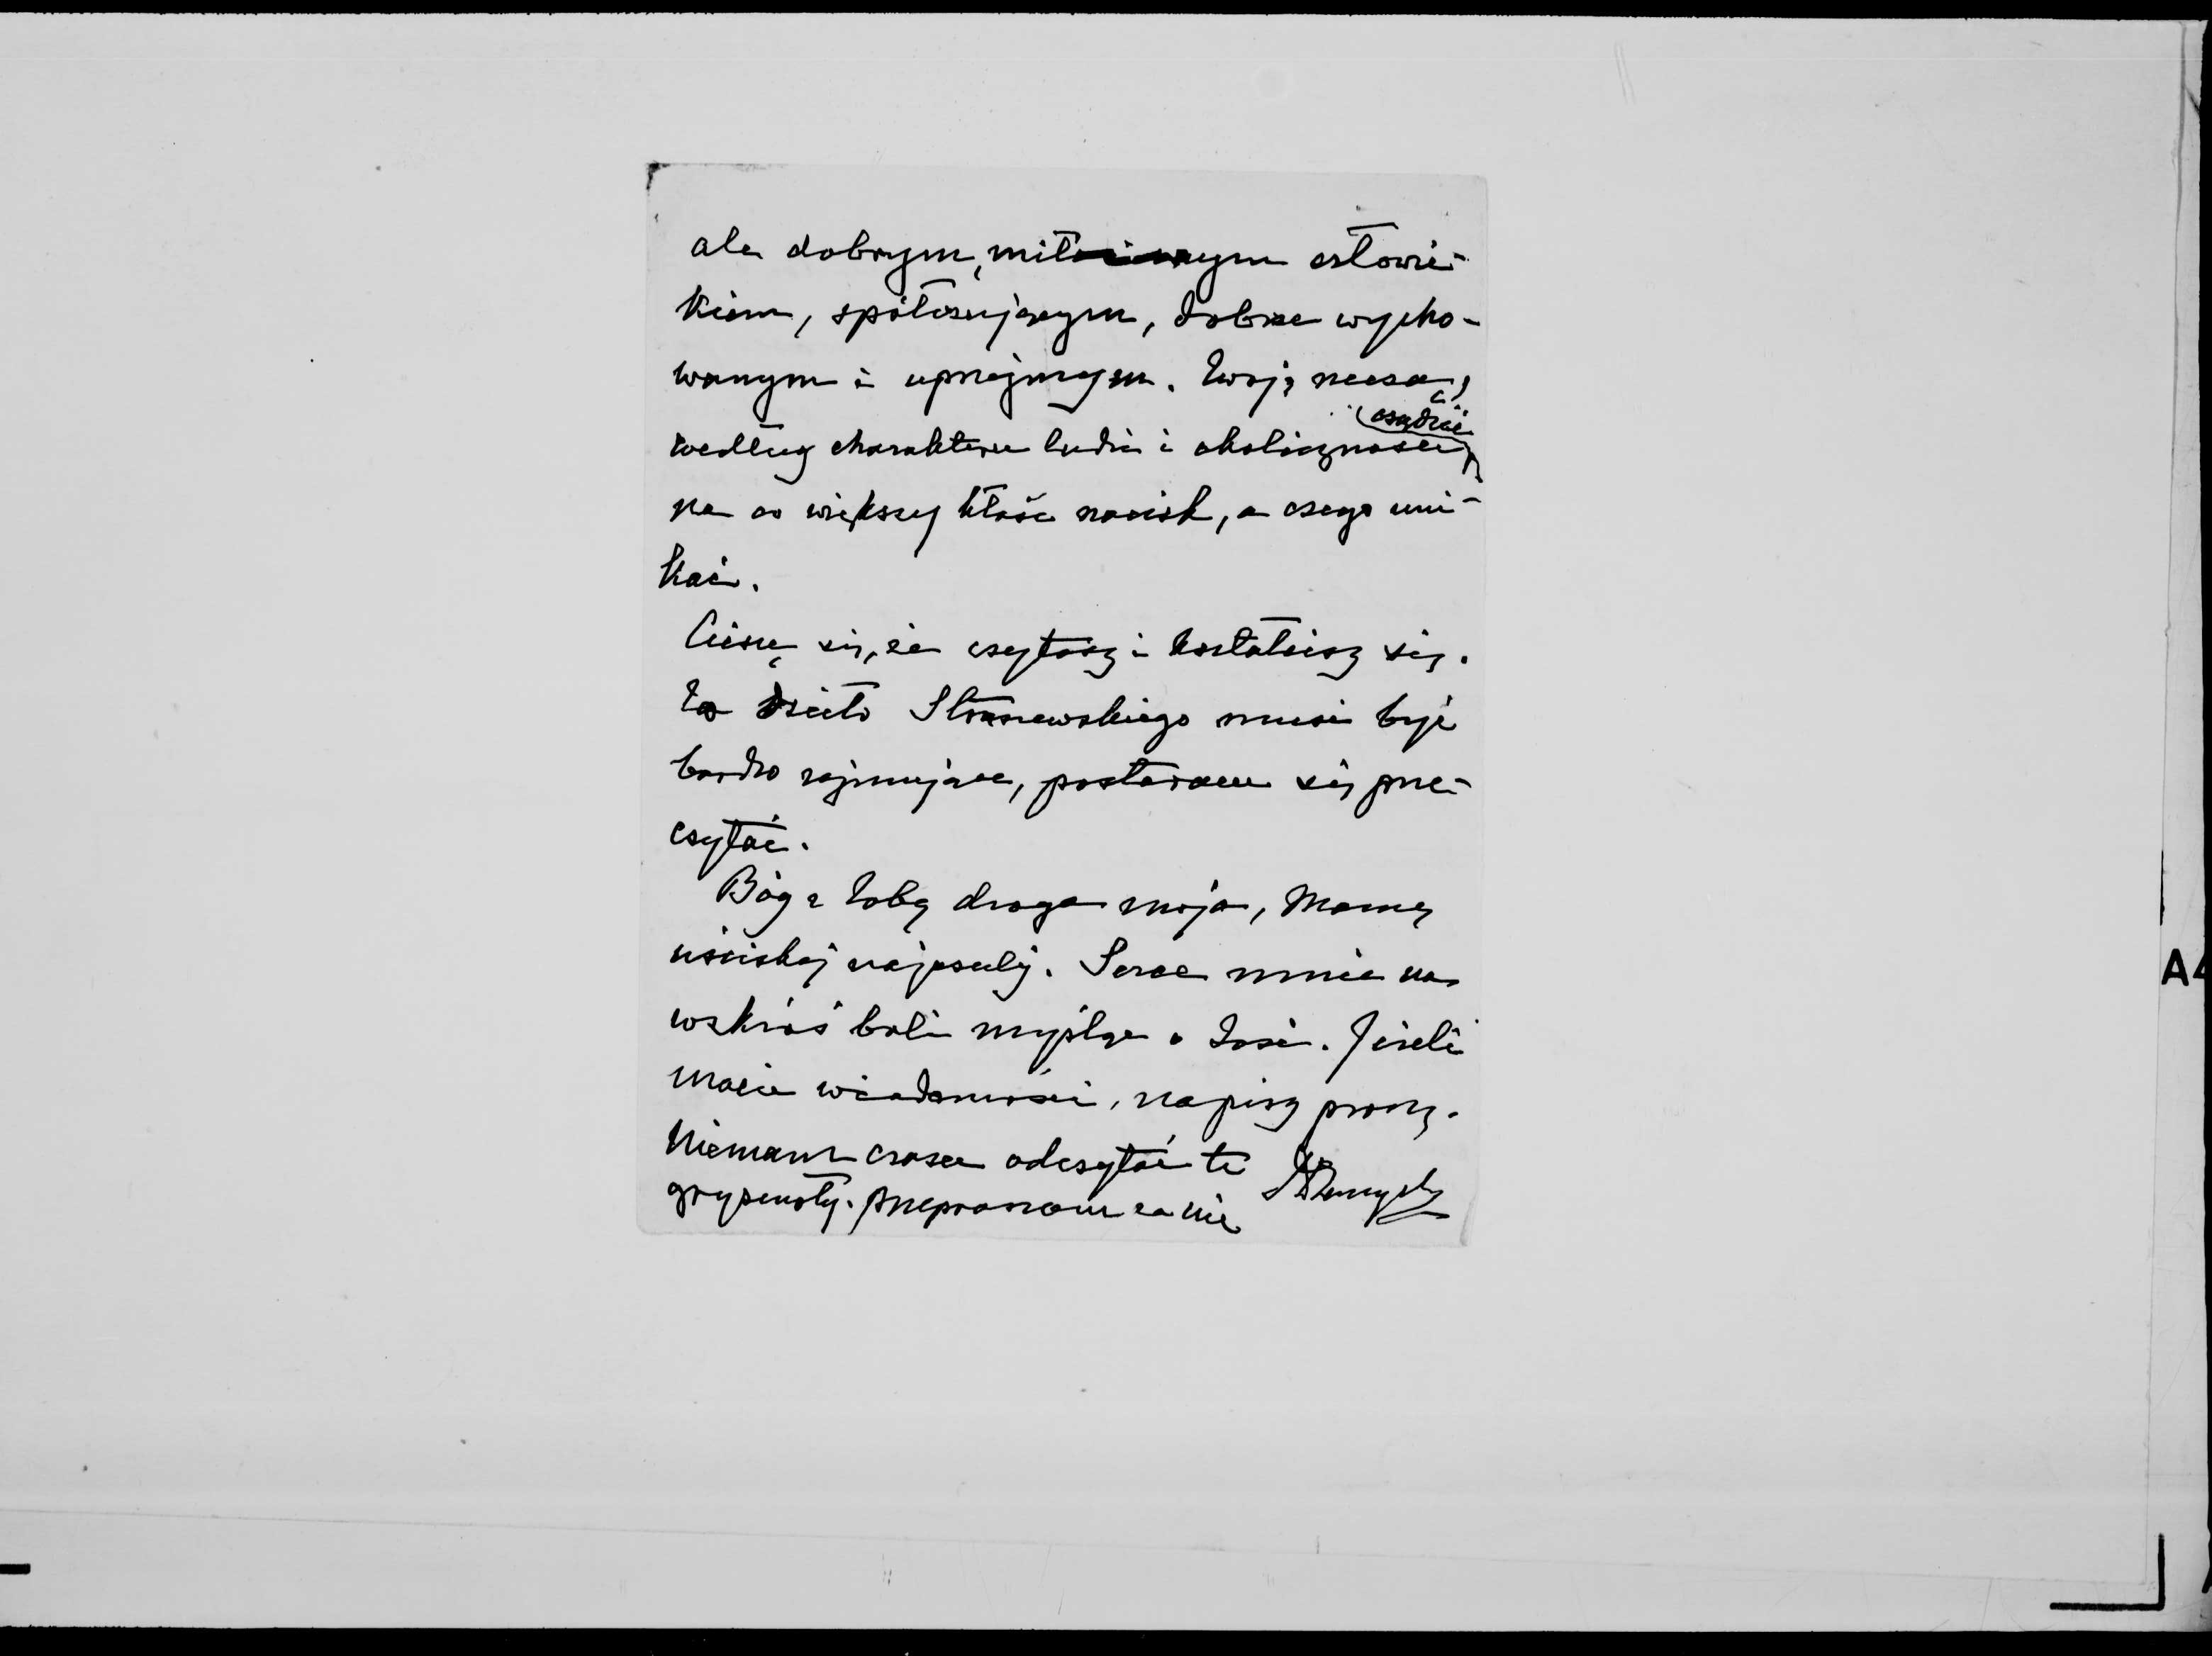 ale dobrym, miłym człowie-
kiem, spółczującym, dobrze wycho-
wanym i uprzejmym. Twoją rzeczą,
osądzić
według charakteru ludzi i okoliczności,
na co większy kłaść nacisk, a czego uni-
kać.
Cieszę się, że czytasz i kształcisz się.
To dzieło Stronewskiego musi być
bardzo zajmujące, postaram się prze-
czytać.
Bóg z Tobą droga moja, Mamę
uściskaj najczulej. Serce mnie na
wskróś boli myśląc o Zosi. Jeżeli
macie wiadomości, napisz proszę.
Niemam czasu odczytać te
gryzmoły. Przepraszam za nie